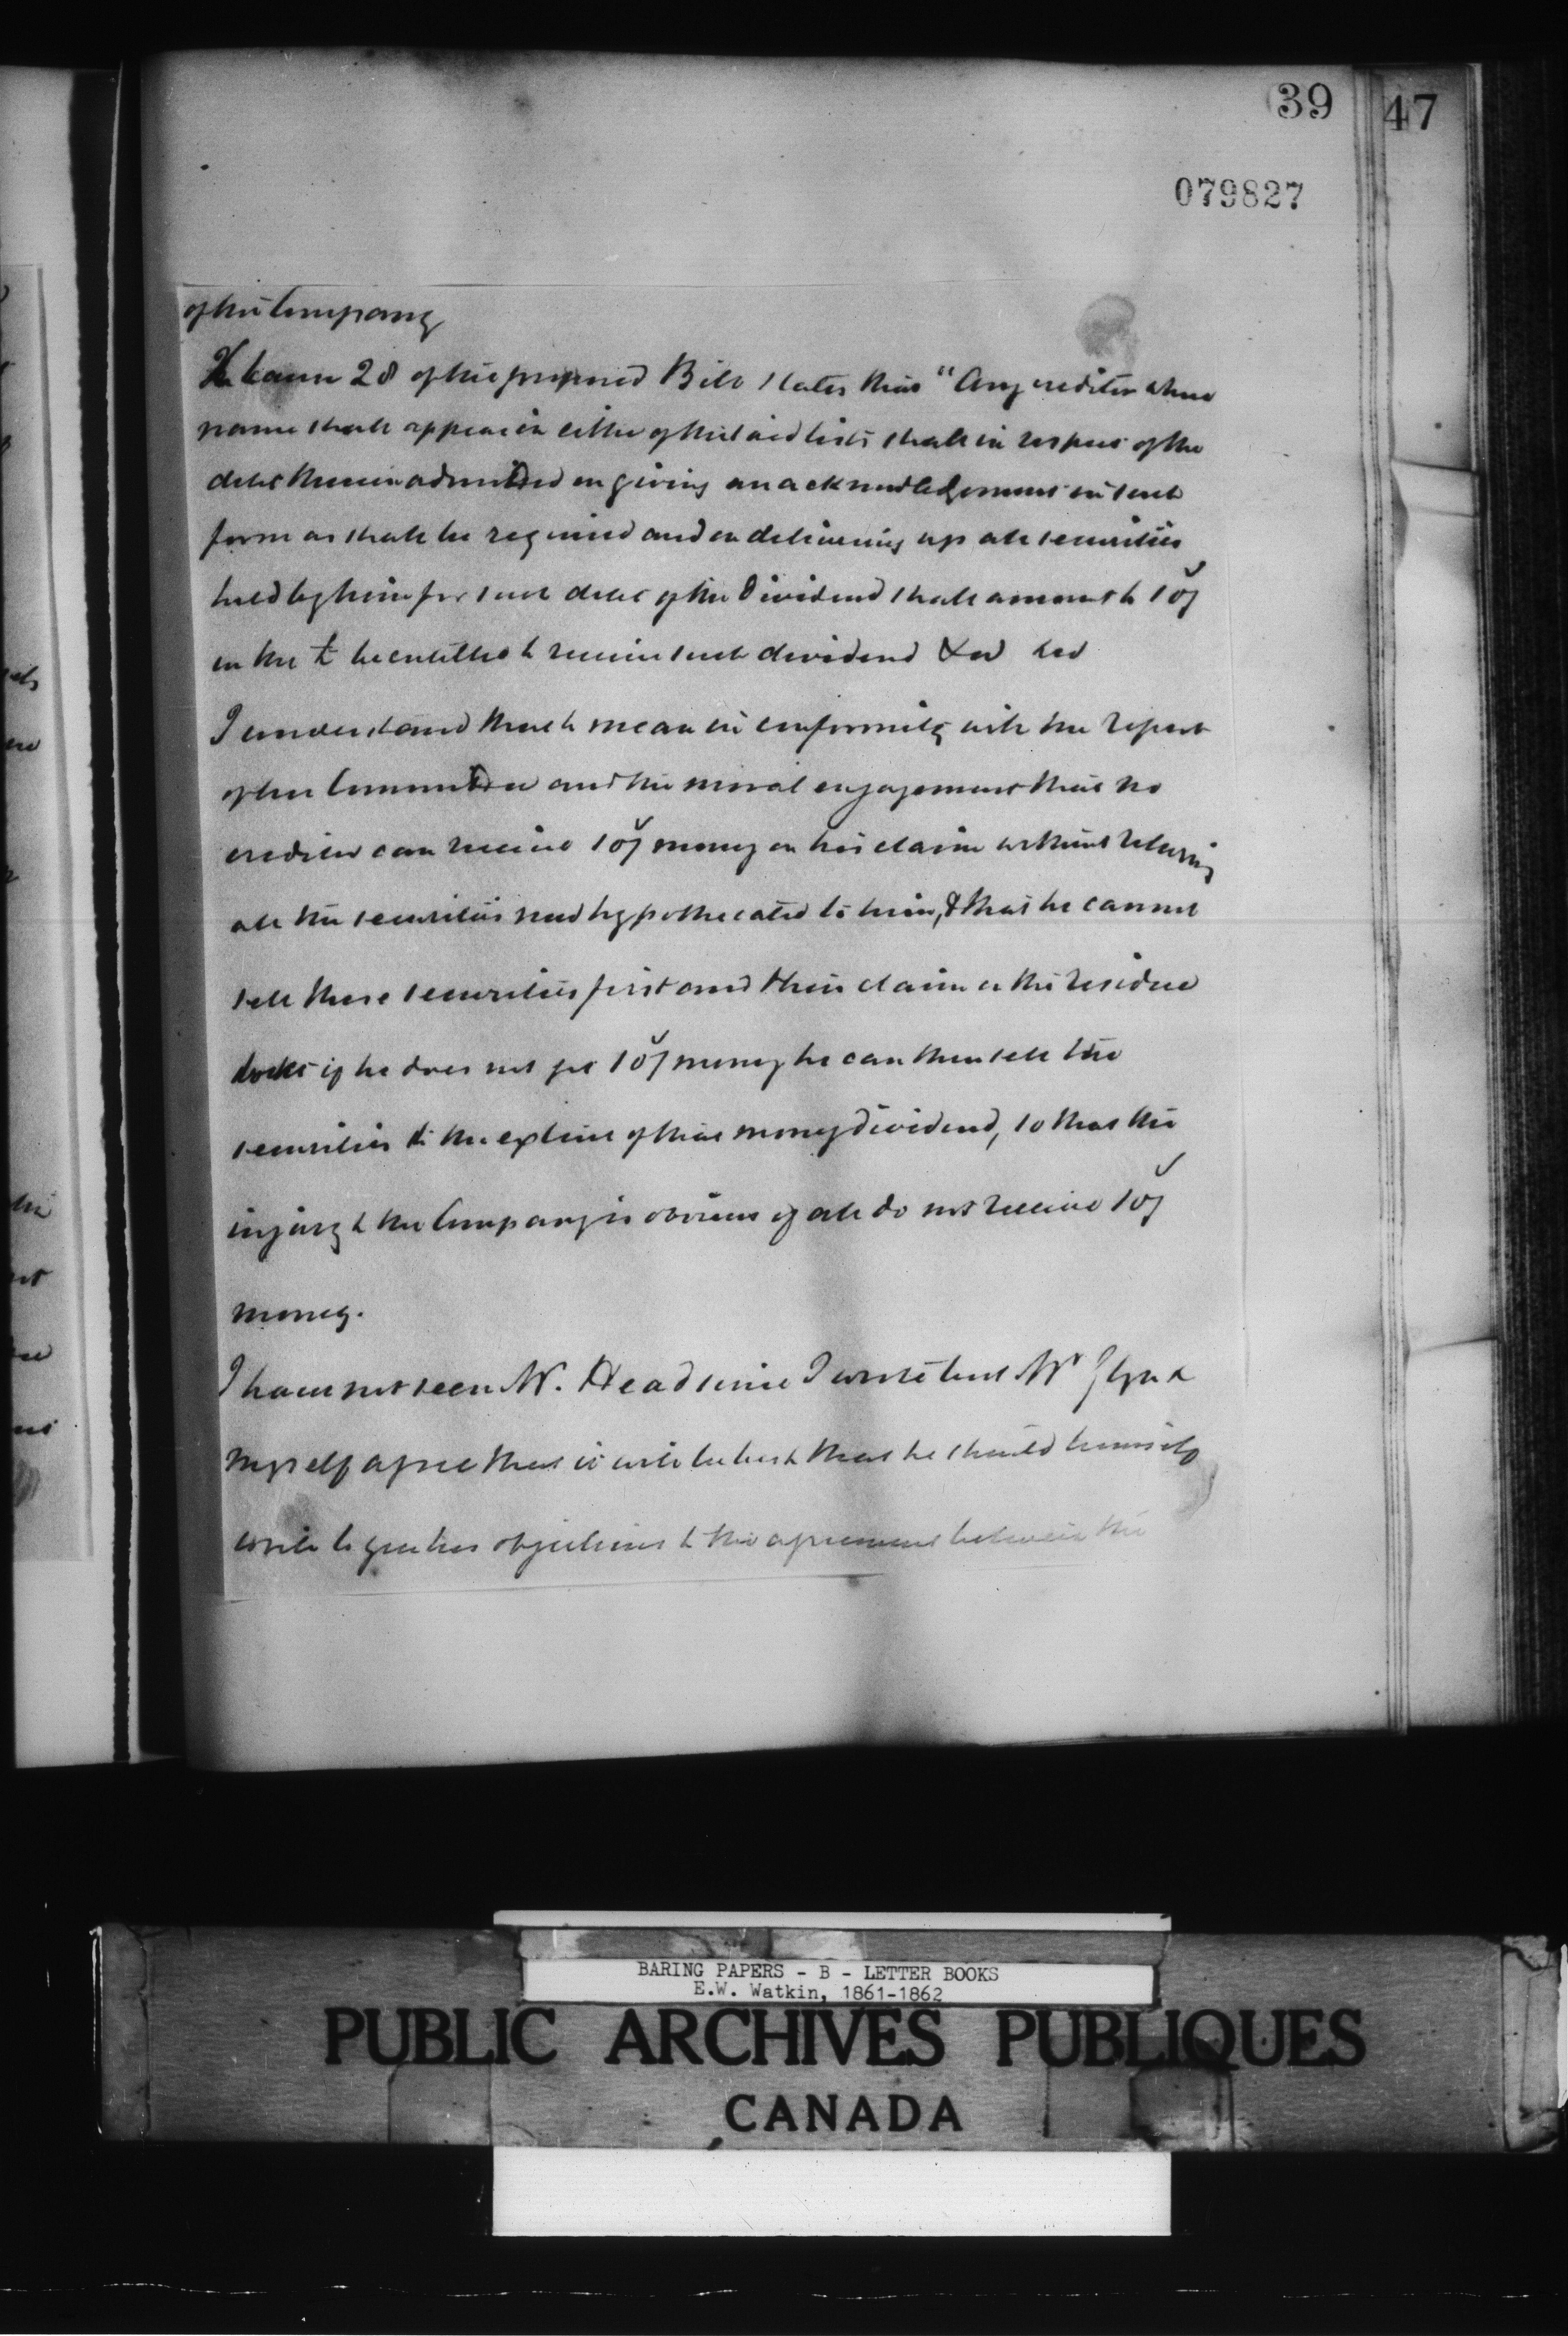 39
47
079827
of the Company
The clause 28 of the proposed Bill states that "Any creditor whose
name shall appear in either of the said lists shall in respect of the
debt therein admitted on giving an acknowledgement in such
form as shall be required and on delivering up all securities
held by him for such debt if the Dividend shall amount to 10/
in the £ be entitled to receive such dividend &c &c
I understand that to mean in conformity with the report
of the Committee and the moral engagement that no
creditor can receive 10/ money on his claim without returning
all the securities now hypothecated to him, & that he cannot
sell these securities first and then claim on the residue
if he does not get 10/ money he can then sell the
securities to the extent of that money dividend, so that the
injury to the Company is obvious if all do not receive 10/
money.
I have not seen Mr. Head since I wrote but Mr Glyn &
myself agree that it will be best that he should himself
write to you his objections to the agreement between the
BARING PAPERS - B - LETTER BOOKS
E.W. Watkin, 1861-1862
PUBLIC ARCHIVES PUBLIQUES
CANADA